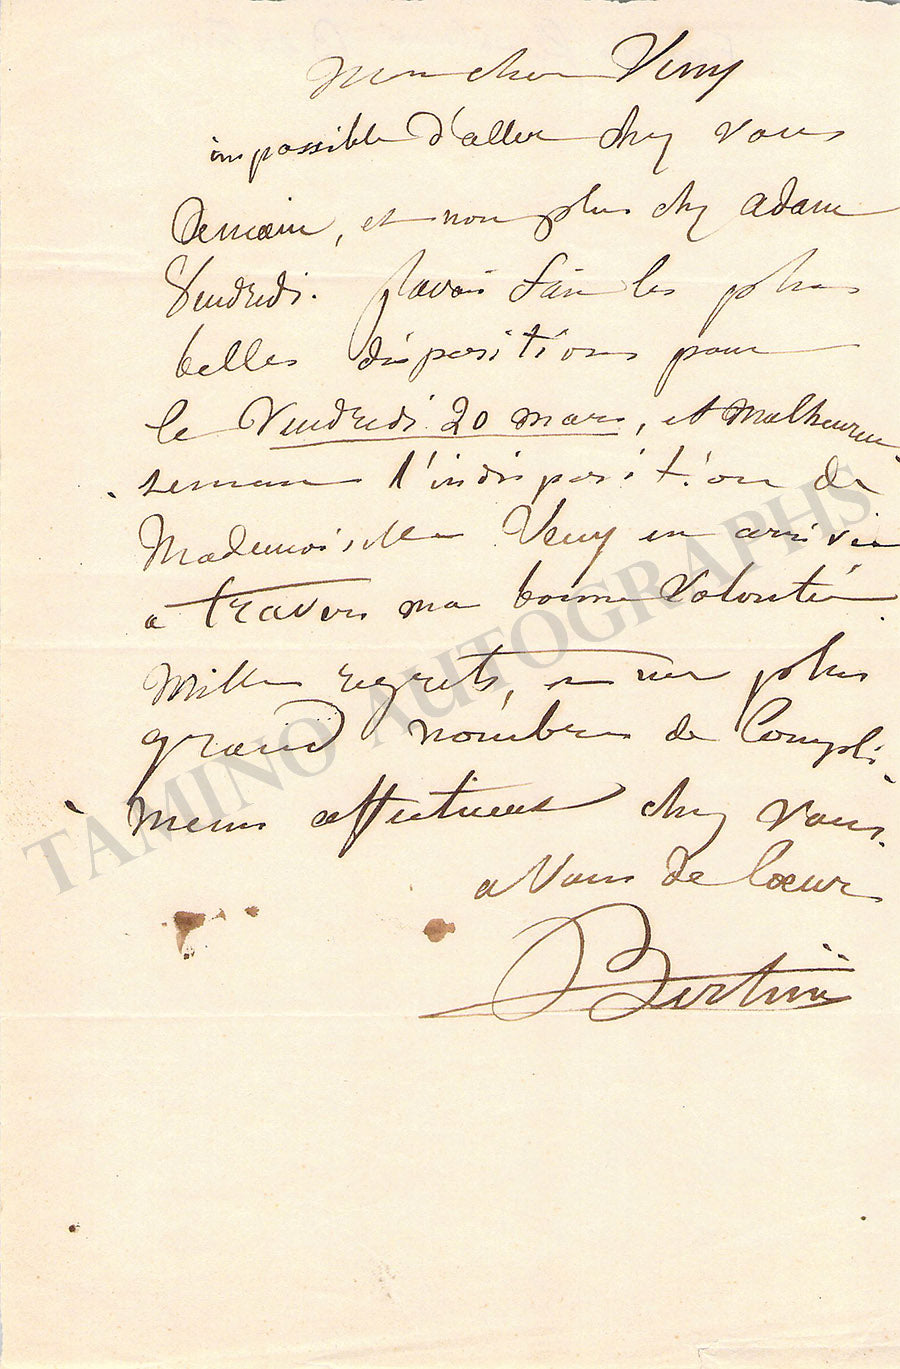 Mon cher Veny
impossible d'aller chez vous
Demain, et non plus chez adam
Vendredi. J'avais fait les plus
belles dispositions pour
le Vendredi 20 mars, et Malheureu-
-sement l'indisposition de
Mademoiselle Veny est arrivée
a travers ma bonne Volonté.
Mille regrets, et un plus
grand nombre de Compli-
-mens affectueux chez Vous.
a Vous de Coeur
Bertini
TAMINO AUTOGRAPHS